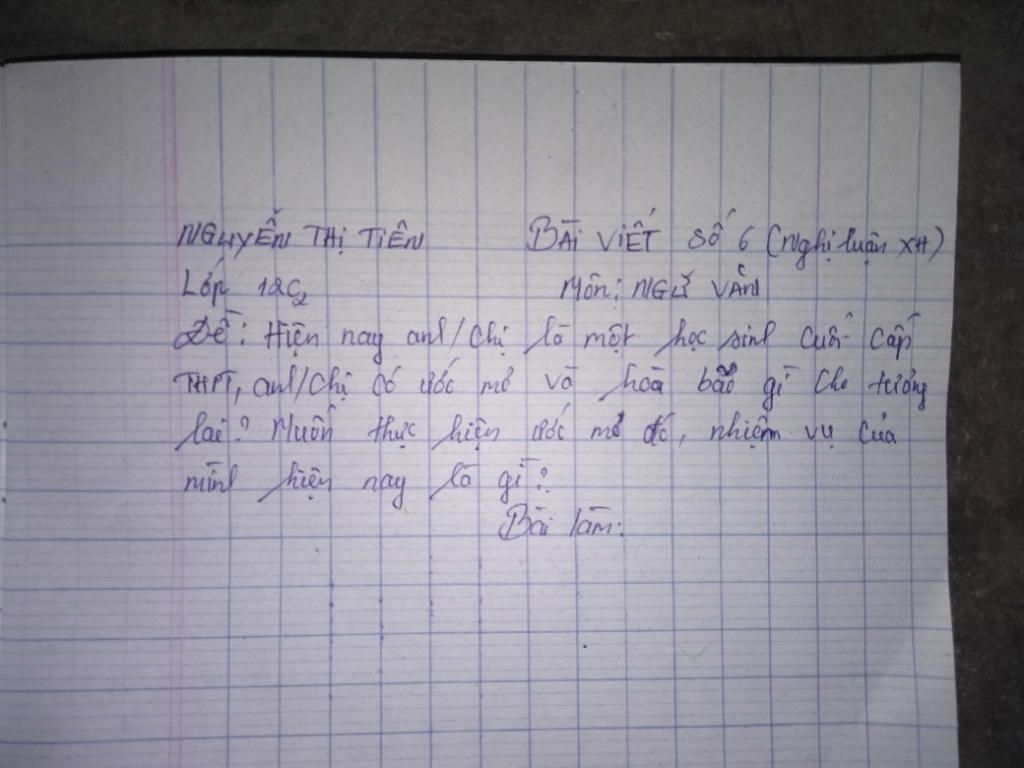 NGUYỄN THỊ TIÊN BÀI VIẾT SỐ 6 (Nghị luận XH)
Lớp 12C2 Môn: NGỮ VĂN
Đề: Hiện nay anh/chị là một học sinh cuối cấp
THPT, anh/chị có ước mơ và hoài bão gì cho tương
lai? Muốn thực hiện ước mơ đó, nhiệm vụ của
mình hiện nay là gì?
Bài làm: